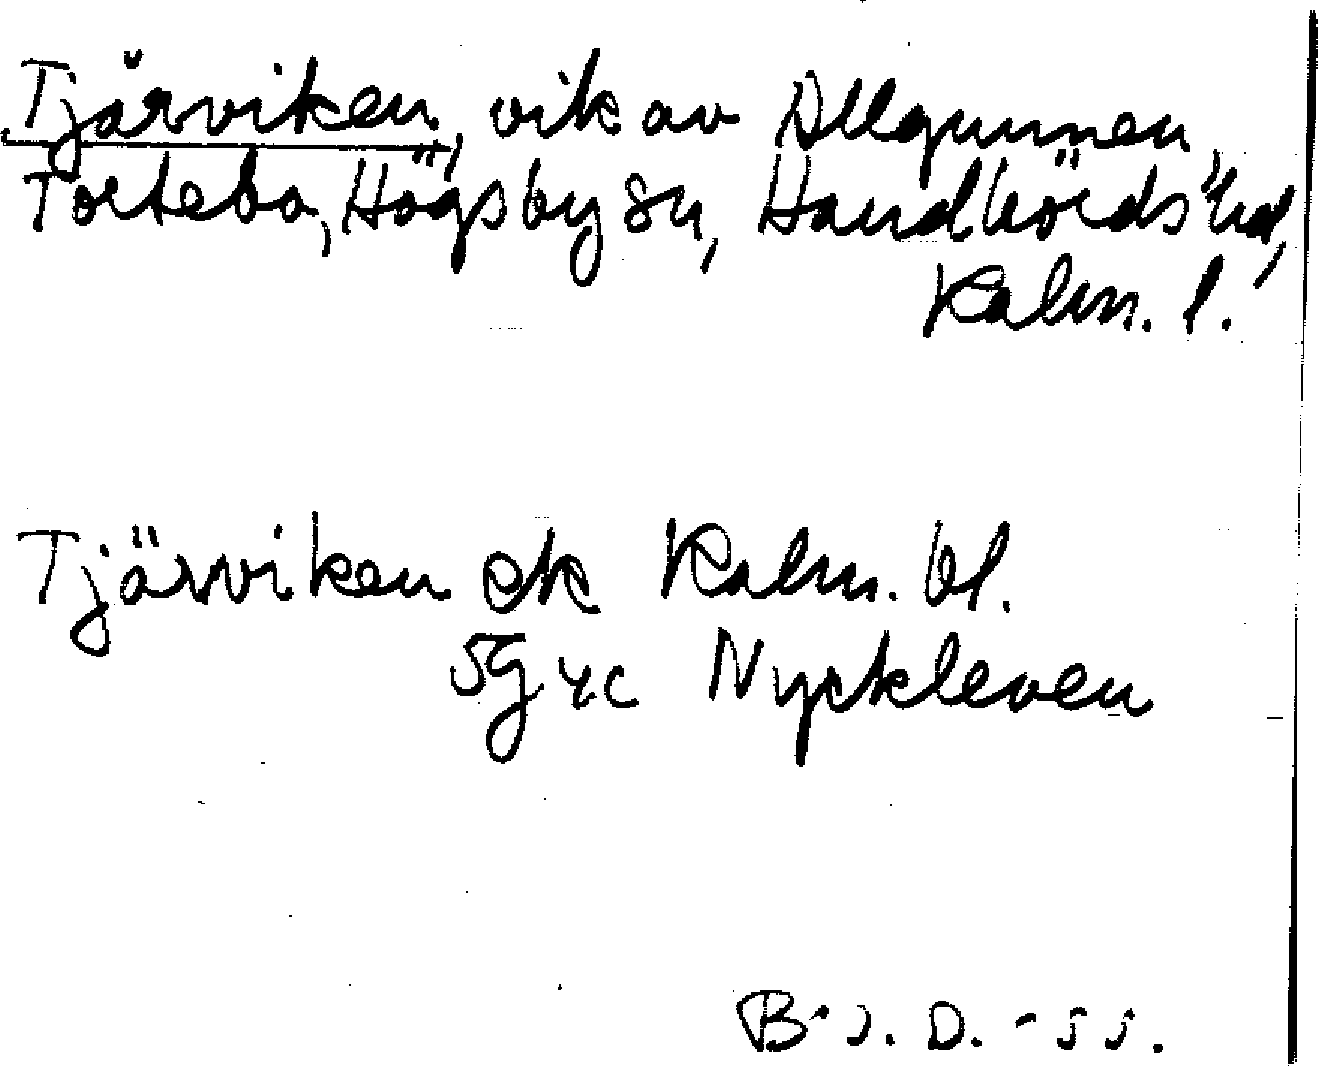 Tjärviken, vik av Allgunnen,
Tortebo, Högsby sn, Handbörds hd,
Kalm. l.
Tjärviken ek Kalm. bl.
5G4c Nyckleven
B. J. D. - 55.